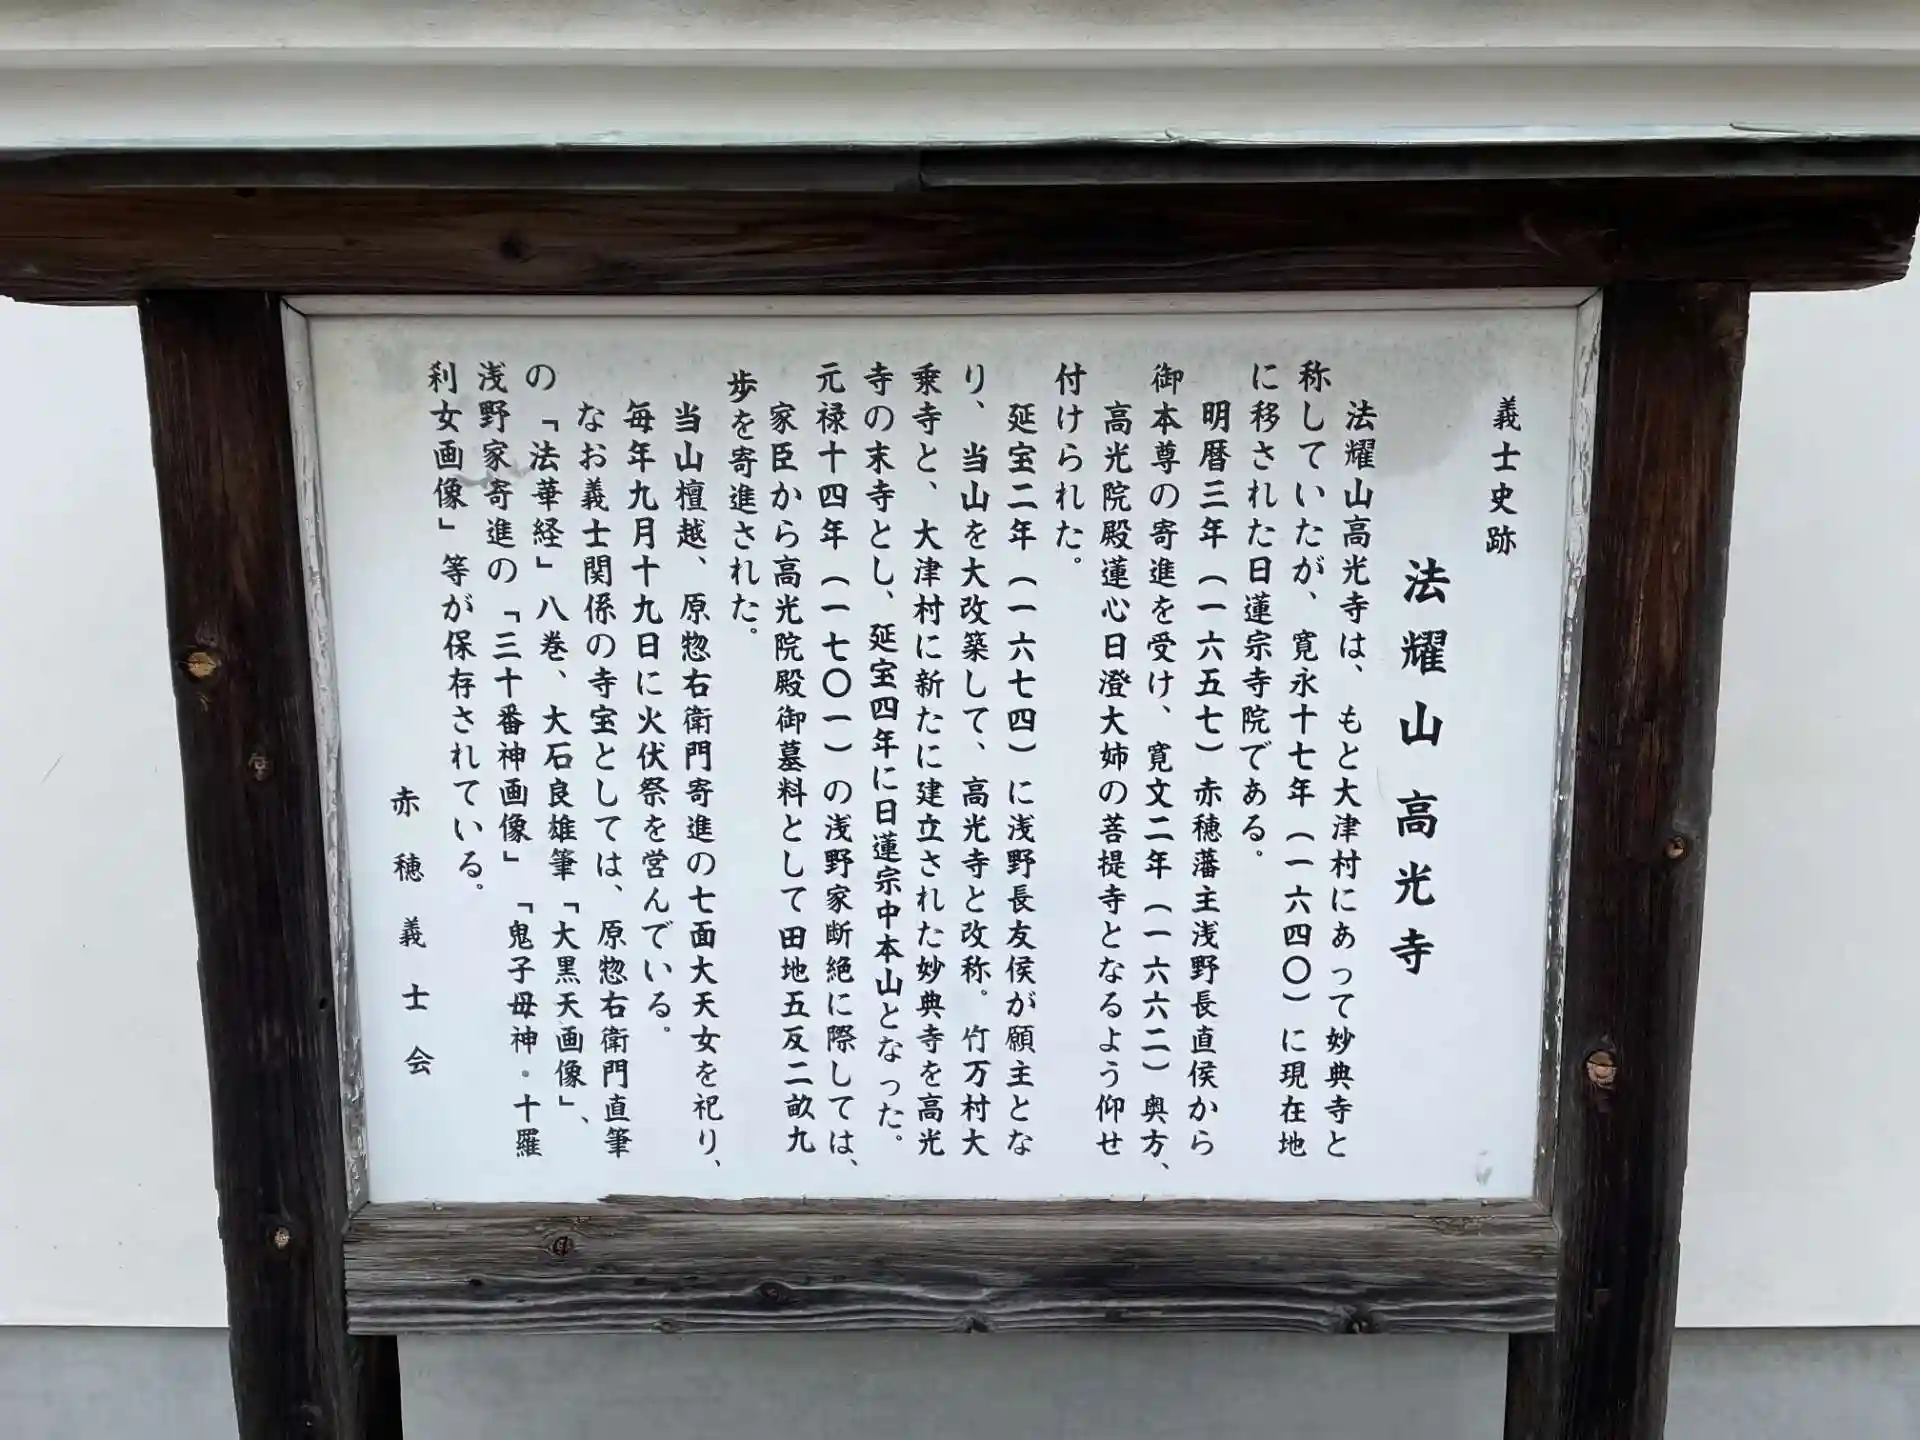 義士史跡
法耀山高光寺
法耀山高光寺は、もと大津村にあって妙典寺と
称していたが、寛永十七年（一六四〇）に現在地
に移された日蓮宗寺院である。
明暦三年（一六五七）赤穂藩主浅野長直侯から
御本尊の寄進を受け、寛文二年（一六六二）奥方、
高光院殿蓮心日澄大姉の菩提寺となるよう仰せ
付けられた。
延宝二年（一六七四）に浅野長友侯が願主とな
り、当山を大改築して、高光寺と改称。竹万村大
乗寺と、大津村に新たに建立された妙典寺を高光
寺の末寺とし、延宝四年に日蓮宗中本山となった。
元禄十四年（一七〇一）の浅野家断絶に際しては、
家臣から高光院殿御墓料として田地五反二畝九
歩を寄進された。
当山檀越、原惣右衛門寄進の七面大天女を祀り、
毎年九月十九日に火伏祭を営んでいる。
なお義士関係の寺宝としては、原惣右衛門直筆
の「法華経」八巻、大石良雄筆「大黒天画像」、
浅野家寄進の「三十番神画像」「鬼子母神・十羅
刹女画像」等が保存されている。
赤穂義士会